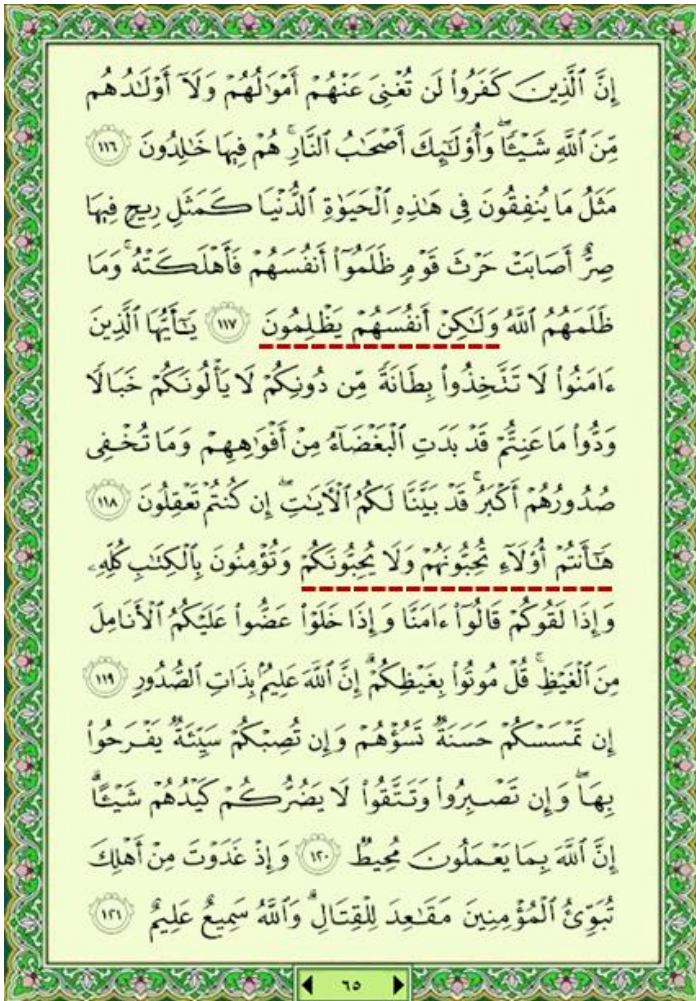 إِنَّ ٱلَّذِينَ كَفَرُوا۟ لَن تُغْنِىَ عَنْهُمْ أَمْوَٰلُهُمْ وَلَآ أَوْلَـٰدُهُم
مِّنَ ٱللَّهِ شَيْـًٔا ۖ وَأُو۟لَـٰٓئِكَ أَصْحَـٰبُ ٱلنَّارِ ۚ هُمْ فِيهَا خَـٰلِدُونَ ١١٦
مَثَلُ مَا يُنفِقُونَ فِى هَـٰذِهِ ٱلْحَيَوٰةِ ٱلدُّنْيَا كَمَثَلِ رِيحٍ فِيهَا
صِرٌّ أَصَابَتْ حَرْثَ قَوْمٍ ظَلَمُوٓا۟ أَنفُسَهُمْ فَأَهْلَكَتْهُ ۚ وَمَا
ظَلَمَهُمُ ٱللَّهُ وَلَـٰكِنْ أَنفُسَهُمْ يَظْلِمُونَ ١١٧ يَـٰٓأَيُّهَا ٱلَّذِينَ
ءَامَنُوا۟ لَا تَتَّخِذُوا۟ بِطَانَةً مِّن دُونِكُمْ لَا يَأْلُونَكُمْ خَبَالًا
وَدُّوا۟ مَا عَنِتُّمْ قَدْ بَدَتِ ٱلْبَغْضَآءُ مِنْ أَفْوَٰهِهِمْ وَمَا تُخْفِى
صُدُورُهُمْ أَكْبَرُ ۚ قَدْ بَيَّنَّا لَكُمُ ٱلْـَٔايَـٰتِ ۖ إِن كُنتُمْ تَعْقِلُونَ ١١٨
هَـٰٓأَنتُمْ أُو۟لَآءِ تُحِبُّونَهُمْ وَلَا يُحِبُّونَكُمْ وَتُؤْمِنُونَ بِٱلْكِتَـٰبِ كُلِّهِۦ
وَإِذَا لَقُوكُمْ قَالُوٓا۟ ءَامَنَّا وَإِذَا خَلَوْا۟ عَضُّوا۟ عَلَيْكُمُ ٱلْأَنَامِلَ
مِنَ ٱلْغَيْظِ ۚ قُلْ مُوتُوا۟ بِغَيْظِكُمْ ۗ إِنَّ ٱللَّهَ عَلِيمٌۢ بِذَاتِ ٱلصُّدُورِ ١١٩
إِن تَمْسَسْكُمْ حَسَنَةٌ تَسُؤْهُمْ وَإِن تُصِبْكُمْ سَيِّئَةٌ يَفْرَحُوا۟
بِهَا ۖ وَإِن تَصْبِرُوا۟ وَتَتَّقُوا۟ لَا يَضُرُّكُمْ كَيْدُهُمْ شَيْـًٔا ۗ
إِنَّ ٱللَّهَ بِمَا يَعْمَلُونَ مُحِيطٌ ١٢٠ وَإِذْ غَدَوْتَ مِنْ أَهْلِكَ
تُبَوِّئُ ٱلْمُؤْمِنِينَ مَقَـٰعِدَ لِلْقِتَالِ ۗ وَٱللَّهُ سَمِيعٌ عَلِيمٌ ١٢١
٦٥